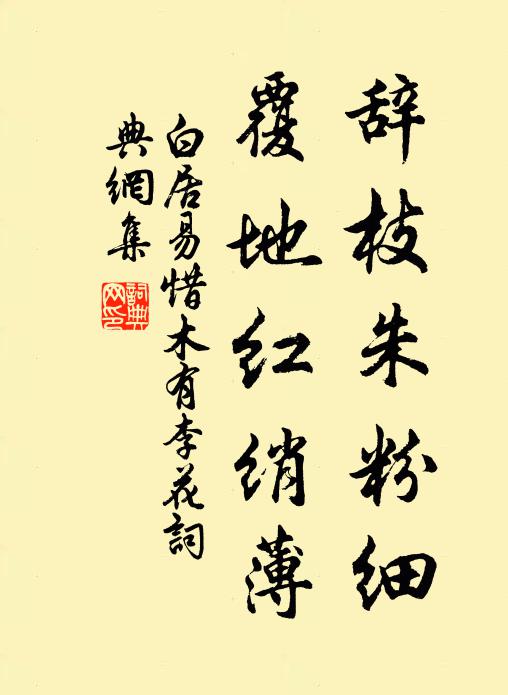 辞枝朱粉细
覆地红绡薄
白居易惜木有李花詞
典網集
詞典網印